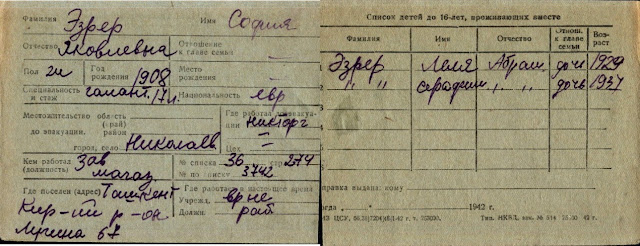 Фамилия Эзрер Имя София
Отчество Яковлевна Отношение к главе семьи —
Пол ж Год рождения 1908 Место рождения —
Специальность и стаж галант. 17 л. Национальность евр
Местожительство до эвакуации. область (край) район город, село Николаев
Где работал до эвакуации Никторг
Цех —
Кем работал (должность) Зав магаз.
№ списка 36 стр 274
№ по списку 3742
Где поселен (адрес) Ташкент
Кир-ий р-он
67
Где работает в настоящее время
Учрежд. вр не
Должн. раб
Список детей до 16-лет, проживающих вместе
Фамилия Имя Отчество Отнош. к главе семьи Возраст
1 Эзрер Леля Абрам. дочь 1929
2 " " " " дочь 1937
3
4
5
правка выдана кому
1942 г.
Тип. НКВД, зак. № 534